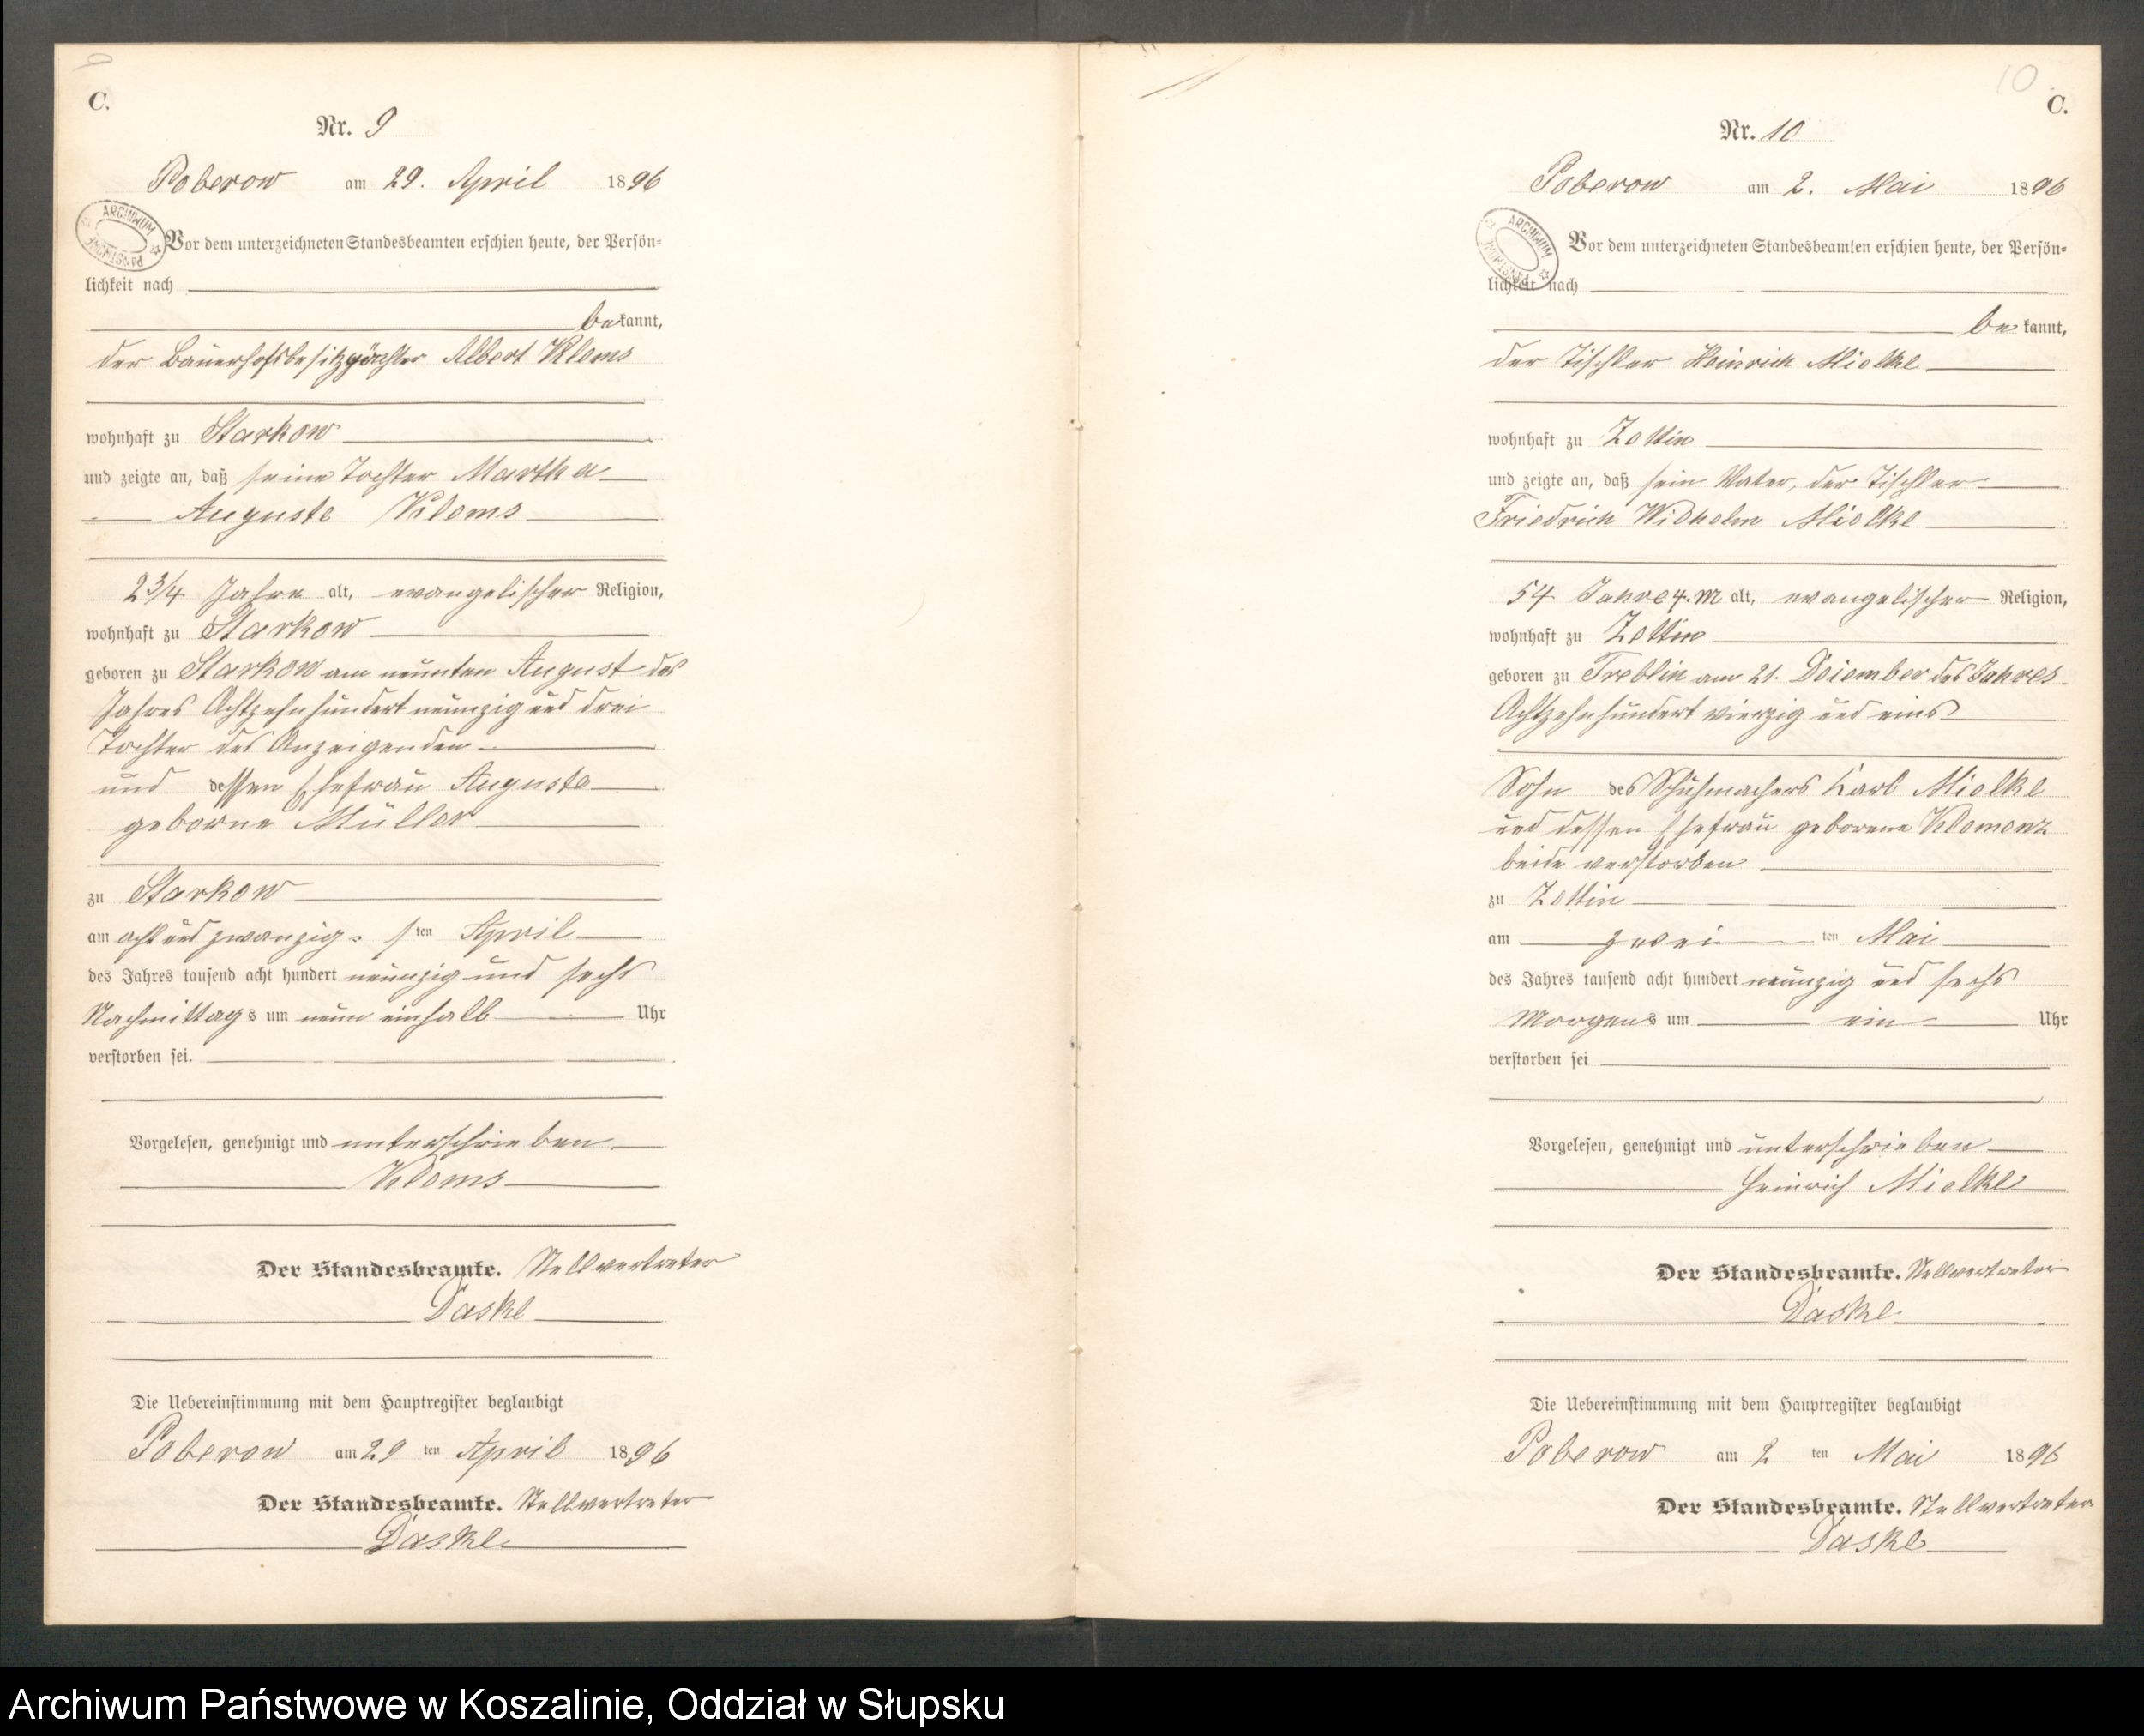 C.
Nr. 9
Poberow am 29. April 1896
Vor dem unterzeichneten Standesbeamten erschien heute, der Persön-
lichkeit nach
bekannt,
der Bauerhofsbesitz Albert Klems
wohnhaft zu Starkow
und zeigte an, daß seine Tochter Martha
Auguste Klems
2 3/4 Jahre alt, evangelischer Religion,
wohnhaft zu Starkow
geboren zu Starkow am neunten August des
Jahres Achtzehnhundert neunzig und drei
Tochter des Anzeigenden
und dessen Ehefrau Auguste
geborne Müller
zu Starkow
am acht und zwanzig- sten April
des Jahres tausend acht hundert neunzig und sechs
Nachmittags um neun einhalb Uhr
verstorben sei.
Vorgelesen, genehmigt und unterschrieben
Klems
Der Standesbeamte. Stellvertreter
Daske
Die Uebereinstimmung mit dem Hauptregister beglaubigt
Poberow am 29 ten April 1896
Der Standesbeamte. Stellvertreter
Daske
10
C.
Nr. 10
Poberow am 2. Mai 1896
Vor dem unterzeichneten Standesbeamten erschien heute, der Persön-
lichkeit nach
bekannt,
der Tischler Heinrich Mielke
wohnhaft zu Zettin
und zeigte an, daß sein Vater, der Tischler
Friedrich Wilhelm Mielke
54 Jahre 4. M alt, evangelischer Religion,
wohnhaft zu Zettin
geboren zu Treblin am 21. Dezember des Jahres
Achtzehnhundert vierzig und eins
Sohn des Schuhmachers Karl Mielke
und dessen Ehefrau geborene Klemenz
beide verstorben
zu Zettin
am zwei ten Mai
des Jahres tausend acht hundert neunzig und sechs
Morgens um ein Uhr
verstorben sei
Vorgelesen, genehmigt und unterschrieben
Heinrich Mielke
Der Standesbeamte. Stellvertreter
Daske
Die Uebereinstimmung mit dem Hauptregister beglaubigt
Poberow am 2 ten Mai 1896
Der Standesbeamte. Stellvertreter
Daske
Archiwum Państwowe w Koszalinie, Oddział w Słupsku